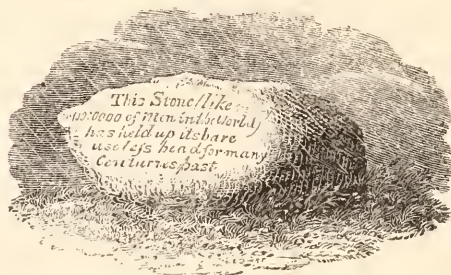 This Stone (like
of Men in the World)
has held up its bare
useless head for many
Centuries past